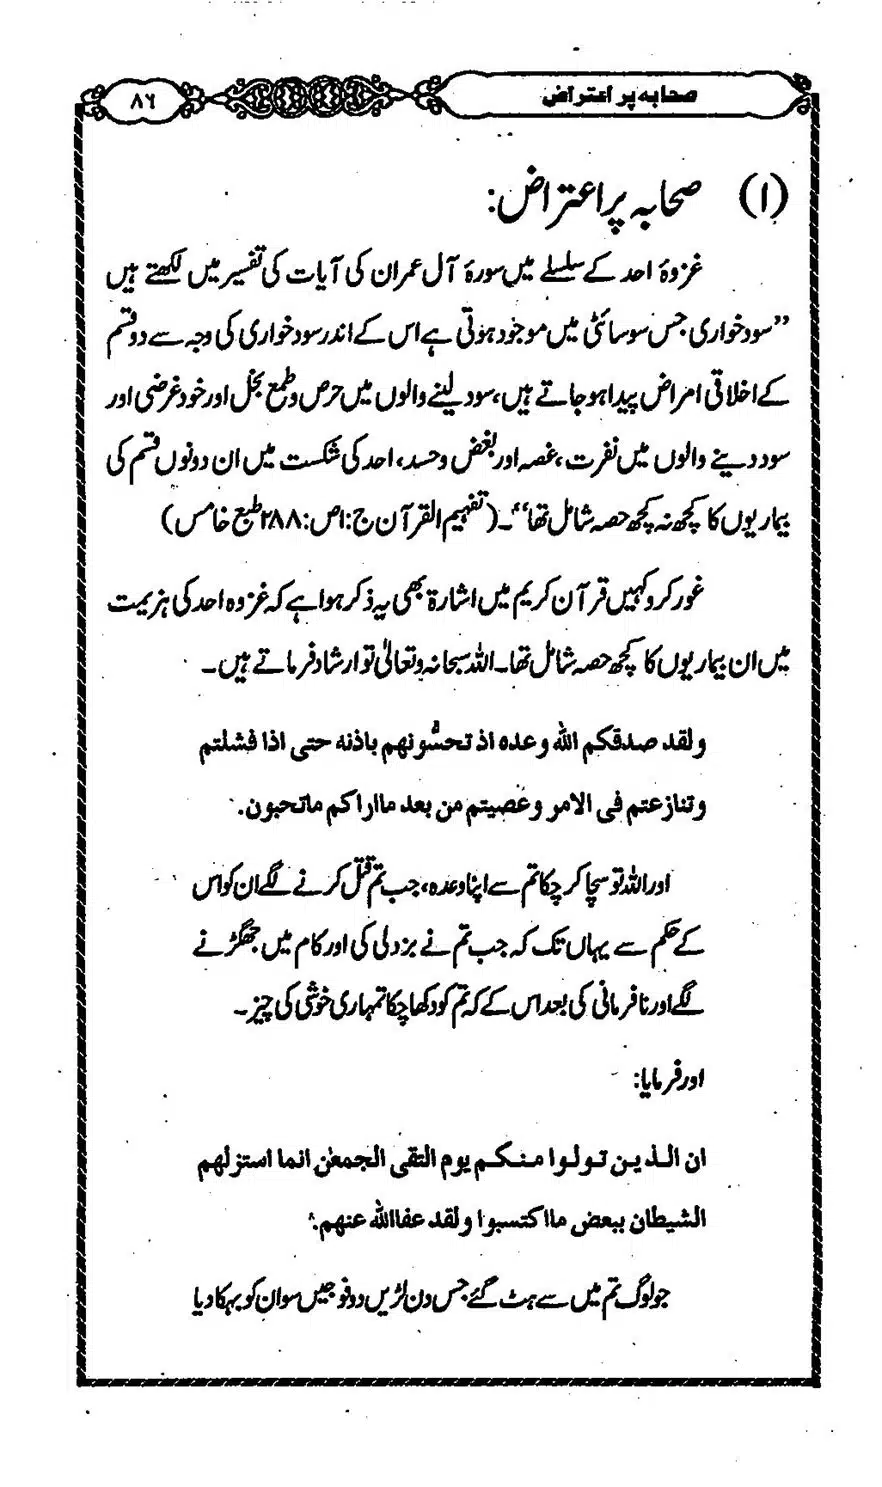 صحابہ پر اعتراض
۸۶
(۱) صحابہ پر اعتراض:
غزوۂ احد کے سلسلے میں سورۂ آل عمران کی آیات کی تفسیر میں لکھتے ہیں
”سود خواری جس سوسائٹی میں موجود ہوتی ہے اس کے اندر سود خواری کی وجہ سے دو قسم
کے اخلاقی امراض پیدا ہو جاتے ہیں، سود لینے والوں میں حرص و طمع بخل اور خود غرضی اور
سود دینے والوں میں نفرت، غصہ اور بغض و حسد، احد کی شکست میں ان دونوں قسم کی
بیماریوں کا کچھ نہ کچھ حصہ شامل تھا“۔ (تفہیم القرآن ج:۱ص:۲۸۸ طبع خامس)
غور کرو کہیں قرآن کریم میں اشارۃ بھی یہ ذکر ہوا ہے کہ غزوہ احد کی ہزیمت
میں ان بیماریوں کا کچھ حصہ شامل تھا۔ اللہ سبحانہ وتعالیٰ تو ارشاد فرماتے ہیں۔
ولقد صدقکم اللہ وعدہ اذ تحسُّونھم باذنہ حتی اذا فشلتم
وتنازعتم فی الامر وعصیتم من بعد مااراکم ماتحبون.
اور اللہ تو سچا کر چکا تم سے اپنا وعدہ، جب تم قتل کرنے لگے ان کو اس
کے حکم سے یہاں تک کہ جب تم نے بزدلی کی اور کام میں جھگڑنے
لگے اور نافرمانی کی بعد اس کے کہ تم کو دکھا چکا تمہاری خوشی کی چیز۔
اور فرمایا:
ان الذین تولوا منکم یوم التقی الجمعٰن انما استزلھم
الشیطان ببعض مااکتسبوا ولقد عفااللہ عنھم.
جو لوگ تم میں سے ہٹ گئے جس دن لڑیں دو فوجیں سو ان کو بہکا دیا